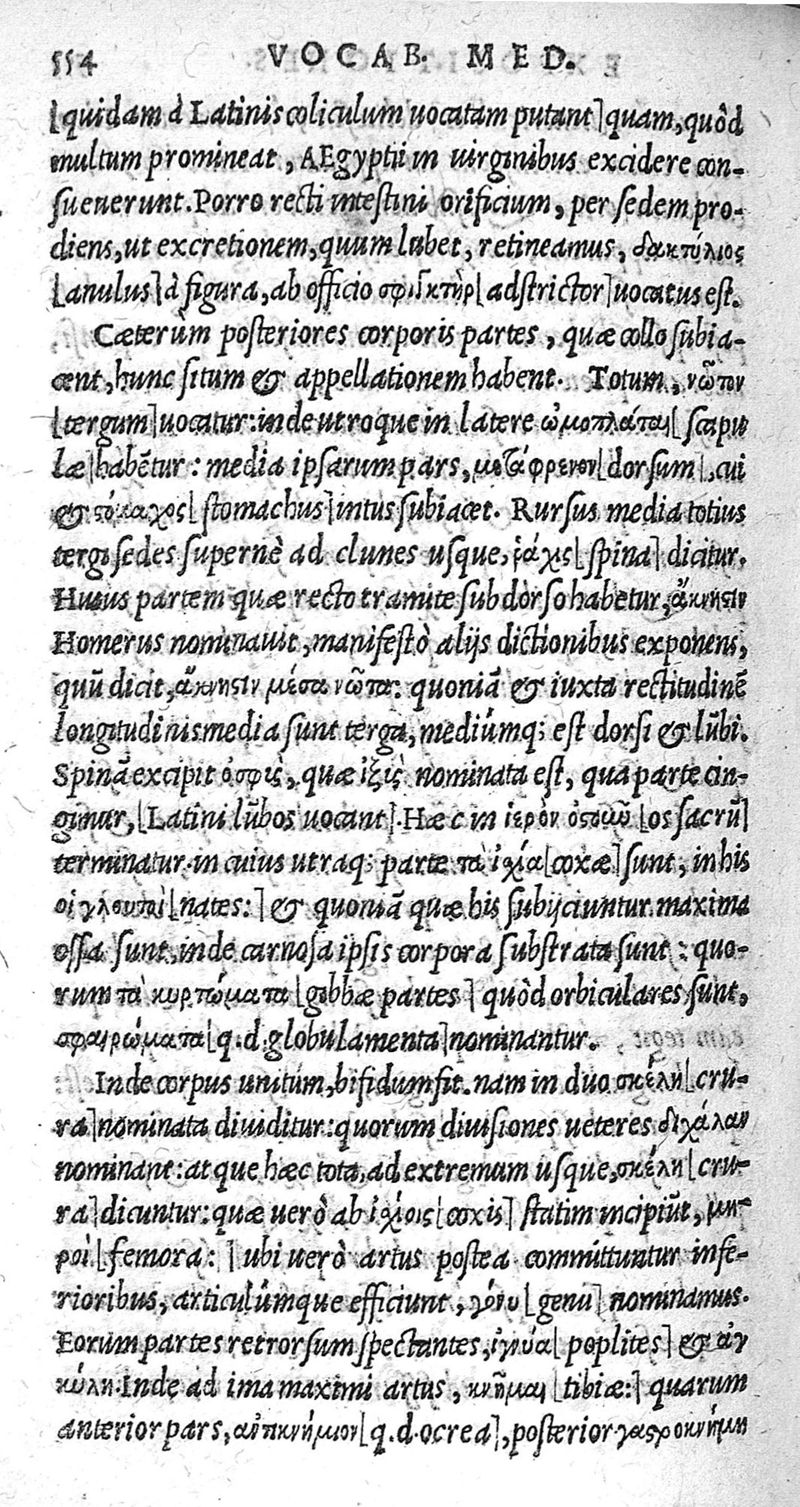 554 VOCAB. MED.
[quidam à Latinis coliculum uocatam putant] quam, quòd
multum promineat, AEgyptii in uirginibus excidere con-
sueuerunt. Porro recti intestini orificium, per sedem pro-
diens, ut excretionem, quum lubet, retineamus, δακτύλιος
[anulus] à figura, ab officio σφιγκτὴρ [adstrictor] uocatus est.
Cæterùm posteriores corporis partes, quæ collo subia-
cent, hunc situm & appellationem habent. Totum, νῶτον
[tergum] uocatur: inde utroque in latere ὠμοπλάται [scapu
læ] habētur: media ipsarum pars, μετάφρενον [dorsum], cui
& στόμαχος [stomachus] intus subiacet. Rursus media totius
tergi sedes supernè ad clunes usque, ῥάχις [spina] dicitur.
Huius partem quæ recto tramite sub dorso habetur, ἄκνησιν
Homerus nominauit, manifestò alijs dictionibus exponens,
quū dicit, ἄκνησιν μέσα νῶτα: quoniā & iuxta rectitudinē
longitudinis media sunt terga, mediúmq; est dorsi & lūbi.
Spinā excipit ὀσφὺς, quæ ἰξὶς nominata est, qua parte cin-
gimur, [Latini lūbos uocant]. Hæc in ἱερὸν ὀστοῦν [os sacrū]
terminatur, in cuius utraq; parte τὰ ἰχία [coxæ] sunt, in his
οἱ γλουτοὶ [nates:] & quoniā quæ his subijciuntur maxima
ossa sunt, inde carnosa ipsis corpora substrata sunt: quo-
rum τὰ κυρτώματα [gibbæ partes] quòd orbiculares sunt,
σφαιρώματα [q.d. globulamenta] nominantur.
Inde corpus unitum, bifidum fit. nam in duo σκέλη [cru-
ra] nominata diuiditur: quorum diuisiones ueteres διχάλαν
nominant: atque hæc tota, ad extremum usque, σκέλη [cru-
ra] dicuntur: quæ uerò ab ἰχίοις [coxis] statim incipiūt, μη-
ροὶ [femora:] ubi uerò artus postea committuntur infe-
rioribus, articulúmque efficiunt, γόνυ [genu] nominamus.
Eorum partes retrorsum spectantes, ἰγνύα [poplites] & ἀγ
κύλη. Inde ad ima maximi artus, κνῆμαι [tibiæ:] quarum
anterior pars, ἀντικνήμιον [q.d. ocrea], posterior γαστροκνήμη